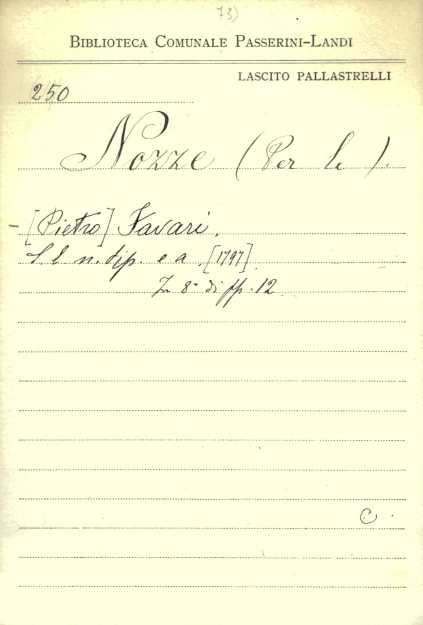 73)
BIBLIOTECA COMUNALE PASSERINI-LANDI
LASCITO PALLASTRELLI
250
Nozze (Per le).
- [Pietro] Favari.
S. l. n. tip. e a. [1797].
In 8° di pp. 12.
C.